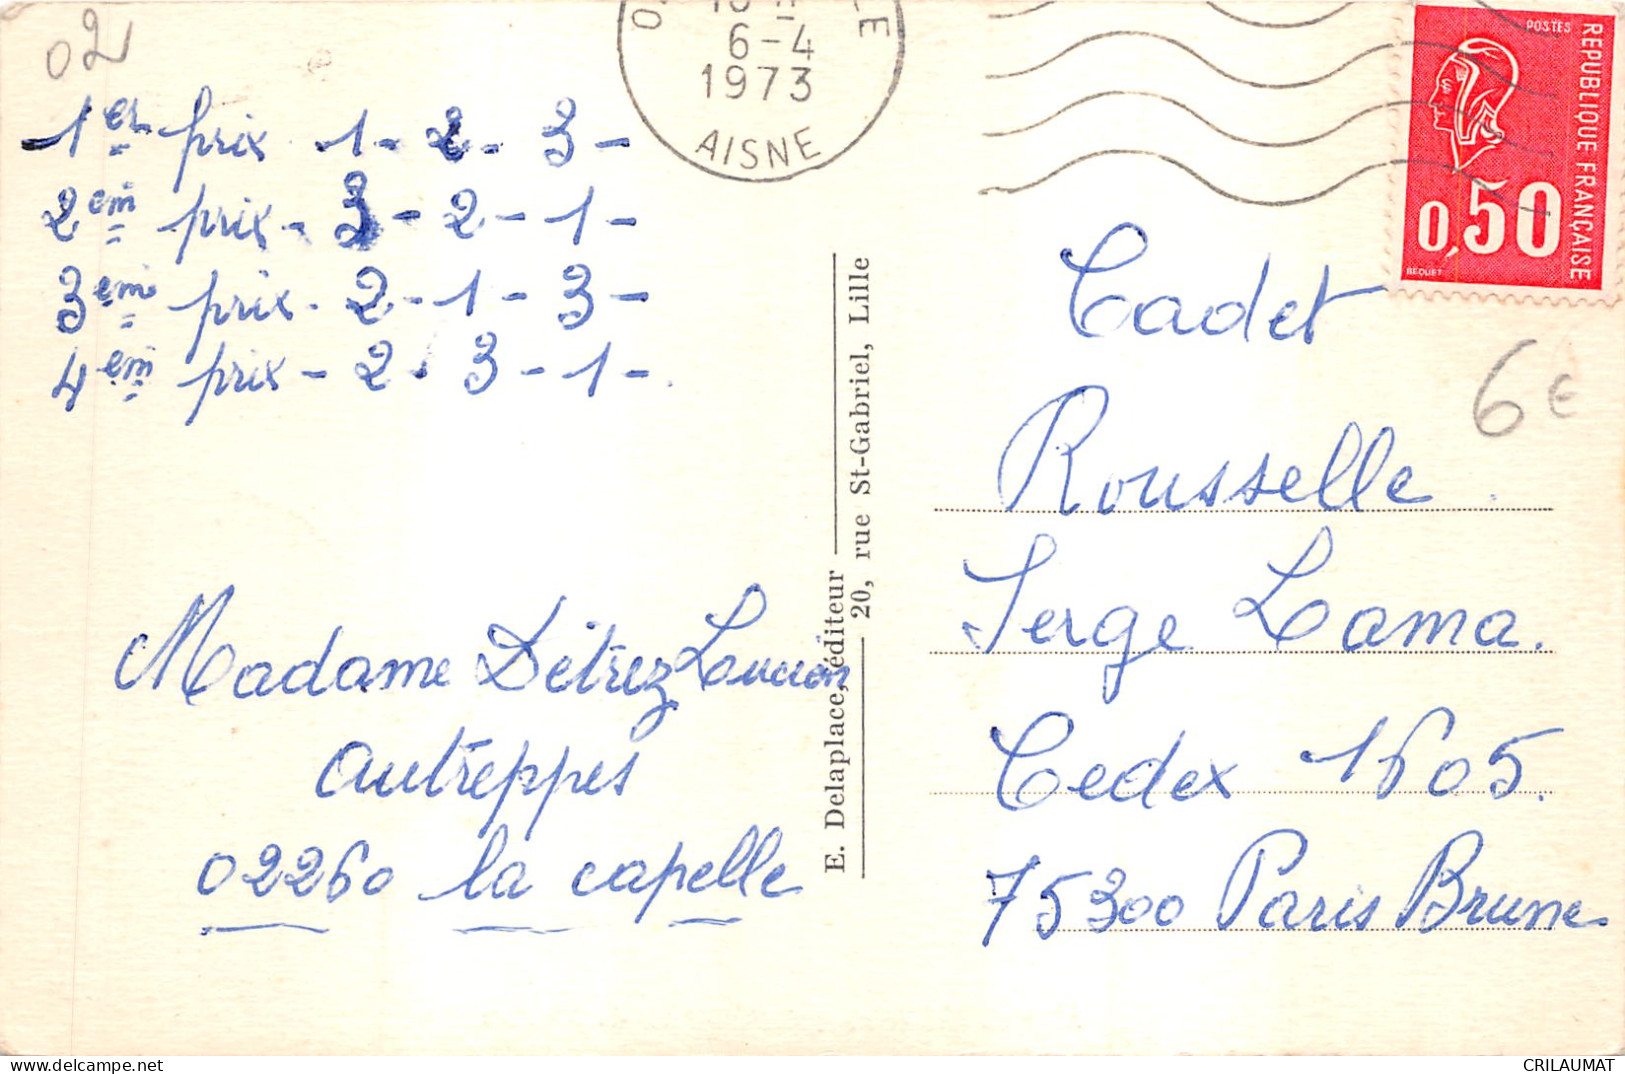 02
1er prix 1 - 2 - 3 -
2em prix - 3 - 2 - 1 -
3em prix - 2 - 1 - 3 -
4em prix - 2 - 3 - 1 - .
Madame Détrez Lucien
Autreppes
02260 la capelle
6-4
1973
AISNE
E. Delaplace, éditeur
20, rue St-Gabriel, Lille
POSTES
REPUBLIQUE FRANÇAISE
0,50
BEQUET
6€
Cadet
Rousselle
Serge Lama.
Cedex 1605.
75300 Paris Brune
CRILAUMAT